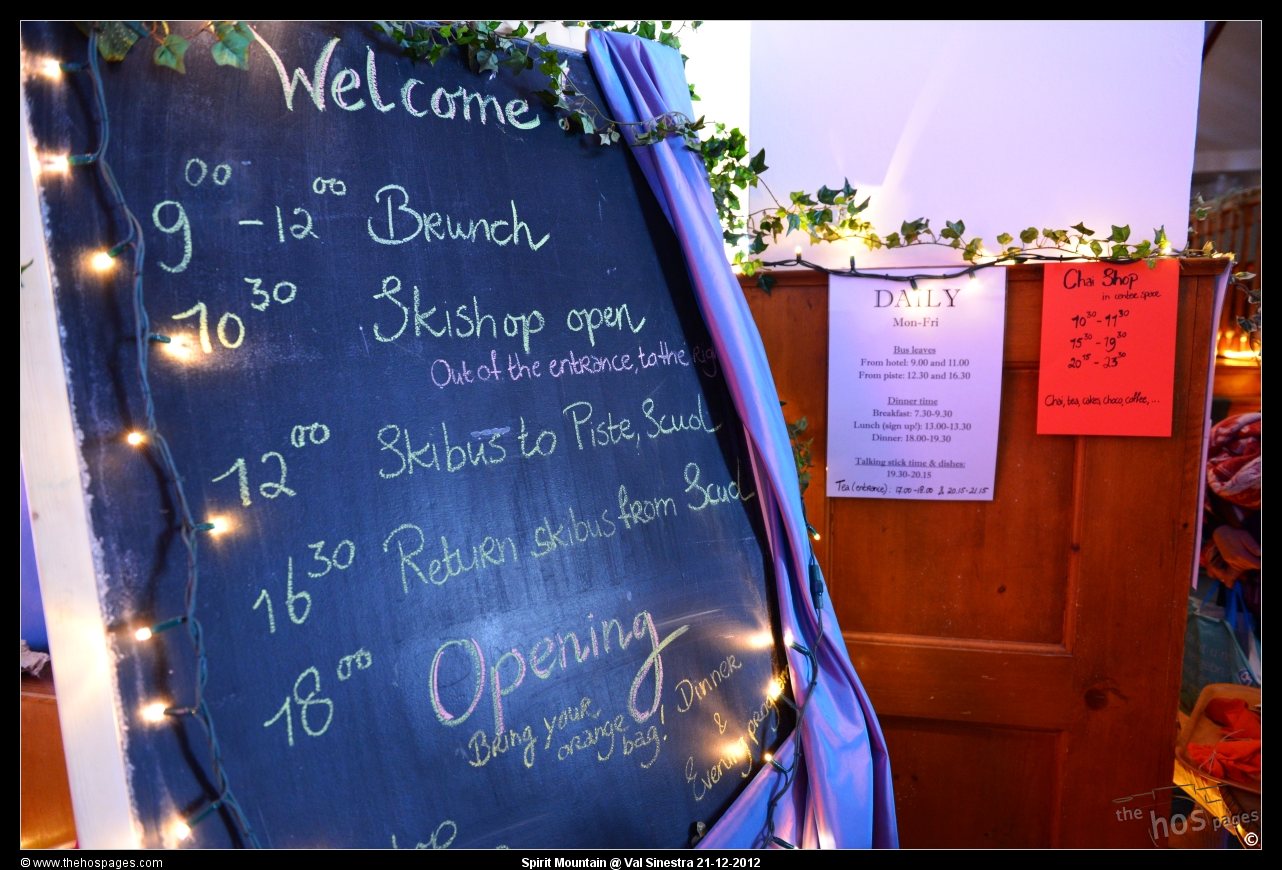 Welcome
9 00 - 12 00 Brunch
10 30 Skishop open
Out of the entrance, to the Right
12 00 Skibus to Piste, Scuol
16 30 Return skibus from Scuol
18 00 Opening
Bring your
orange
bag!
Dinner
&
Evening
DAILY
Mon-Fri
Bus leaves
From hotel: 9.00 and 11.00
From piste: 12.30 and 16.30
Dinner time
Breakfast: 7.30-9.30
Lunch (sign up!): 13.00-13.30
Dinner: 18.00-19.30
Talking stick time & dishes:
19.30-20.15
Tea (entrance): 17.00-18.00 & 20.15-21.15
Chai Shop
in centre space
10 30 - 11 30
15 30 - 19 30
20 15 - 23 30
Chai, tea, cakes, choco, coffee, ...
the hos pages
©
© www.thehospages.com
Spirit Mountain @ Val Sinestra 21-12-2012